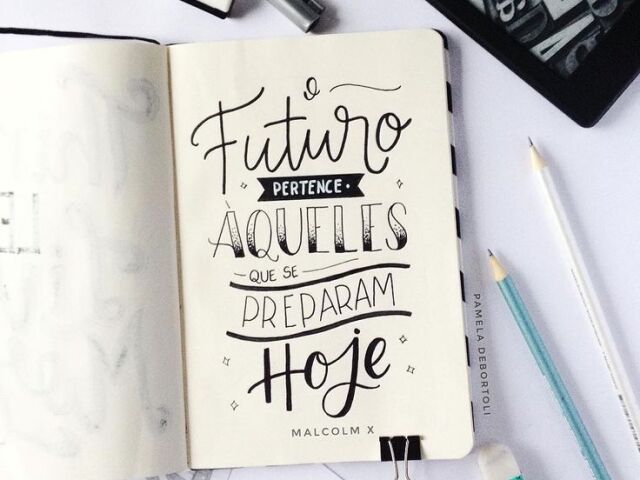 O
Futuro
PERTENCE •
ÀQUELES
QUE SE
PREPARAM
Hoje
MALCOLM X
PAMELA DEBORTOLI